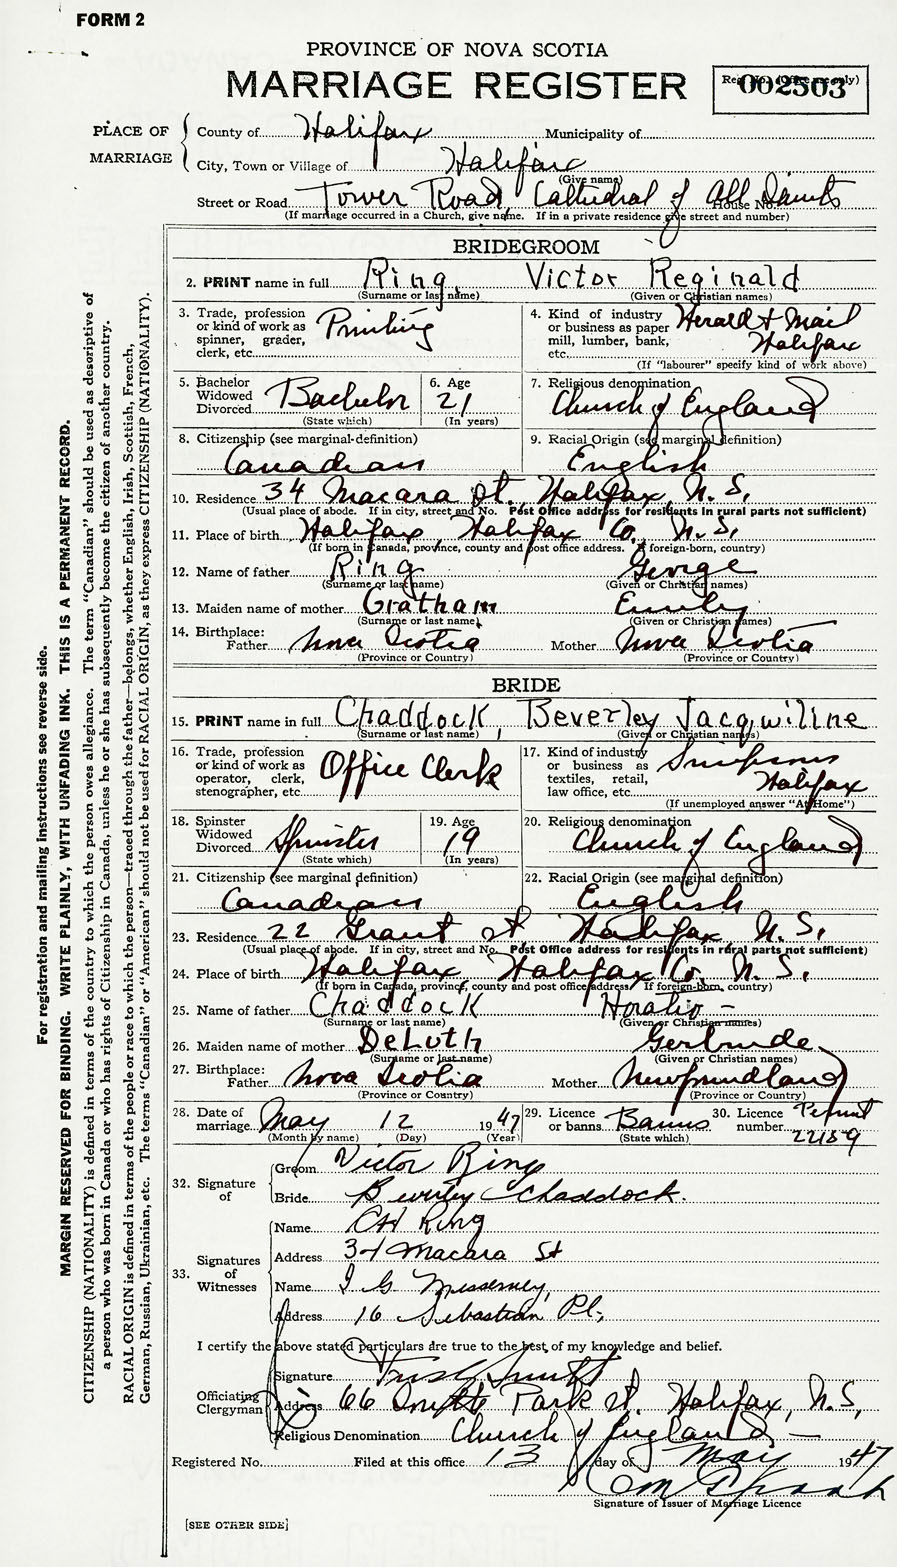 FORM 2
PROVINCE OF NOVA SCOTIA
MARRIAGE REGISTER
Reg. No. (Office use only)
002503
PLACE OF MARRIAGE
County of Halifax Municipality of
City, Town or Village of Halifax
(Give name)
Street or Road Tower Road Cathedral of All Saints House No.
(If marriage occurred in a Church, give name. If in a private residence give street and number)
BRIDEGROOM
2. PRINT name in full Ring, Victor Reginald
(Surname or last name) (Given or Christian names)
3. Trade, profession or kind of work as spinner, grader, clerk, etc. Printing
4. Kind of industry or business as paper mill, lumber, bank, etc. Herald & Mail Halifax
(If "labourer" specify kind of work above)
5. Bachelor Widowed Divorced Bachelor
(State which)
6. Age 21
(In years)
7. Religious denomination Church of England
8. Citizenship (see marginal definition) Canadian
9. Racial Origin (see marginal definition) English
10. Residence 34 Macara St. Halifax, N.S.
(Usual place of abode. If in city, street and No. Post Office address for residents in rural parts not sufficient)
11. Place of birth Halifax, Halifax Co. N.S.
(If born in Canada, province, county and post office address. If foreign-born, country)
12. Name of father Ring George
(Surname or last name) (Given or Christian names)
13. Maiden name of mother Gratham Emily
(Surname or last name) (Given or Christian names)
14. Birthplace: Father Nova Scotia Mother Nova Scotia
(Province or Country) (Province or Country)
BRIDE
15. PRINT name in full Chaddock, Beverley Jacqwiline
(Surname or last name) (Given or Christian names)
16. Trade, profession or kind of work as operator, clerk, stenographer, etc. Office Clerk
17. Kind of industry or business as textiles, retail, law office, etc. Simpsons Halifax
(If unemployed answer "At Home")
18. Spinster Widowed Divorced Spinster
(State which)
19. Age 19
(In years)
20. Religious denomination Church of England
21. Citizenship (see marginal definition) Canadian
22. Racial Origin (see marginal definition) English
23. Residence 22 Grant St Halifax, N.S.
(Usual place of abode. If in city, street and No. Post Office address for residents in rural parts not sufficient)
24. Place of birth Halifax Halifax Co. N.S.
(If born in Canada, province, county and post office address. If foreign-born, country)
25. Name of father Chaddock Horatio -
(Surname or last name) (Given or Christian names)
26. Maiden name of mother DeLuth Gertrude
(Surname or last name) (Given or Christian names)
27. Birthplace: Father Nova Scotia Mother Newfoundland
(Province or Country) (Province or Country)
28. Date of marriage May 12 1947
(Month by name) (Day) (Year)
29. Licence or banns Banns
(State which)
30. Licence number Permit 22159
32. Signature of
Groom Victor Ring
Bride Beverley Chaddock.
33. Signatures of Witnesses
Name Ring
Address 34 Macara St
Name
Address 16 Sebastian Pl.
I certify the above stated particulars are true to the best of my knowledge and belief.
Officiating Clergyman
Signature
Address 66 Park St. Halifax, N.S.
Religious Denomination Church of England -
Registered No. Filed at this office 13 day of May 1947
Signature of Issuer of Marriage Licence
[SEE OTHER SIDE]
For registration and mailing instructions see reverse side.
MARGIN RESERVED FOR BINDING. WRITE PLAINLY, WITH UNFADING INK. THIS IS A PERMANENT RECORD.
CITIZENSHIP (NATIONALITY) is defined in terms of the country to which the person owes allegiance. The term "Canadian" should be used as descriptive of
a person who was born in Canada or who has rights of Citizenship in Canada, unless he or she has subsequently become the citizen of another country.
RACIAL ORIGIN is defined in terms of the people or race to which the person—traced through the father—belongs, whether English, Irish, Scottish, French,
German, Russian, Ukrainian, etc. The terms "Canadian" or "American" should not be used for RACIAL ORIGIN, as they express CITIZENSHIP (NATIONALITY).